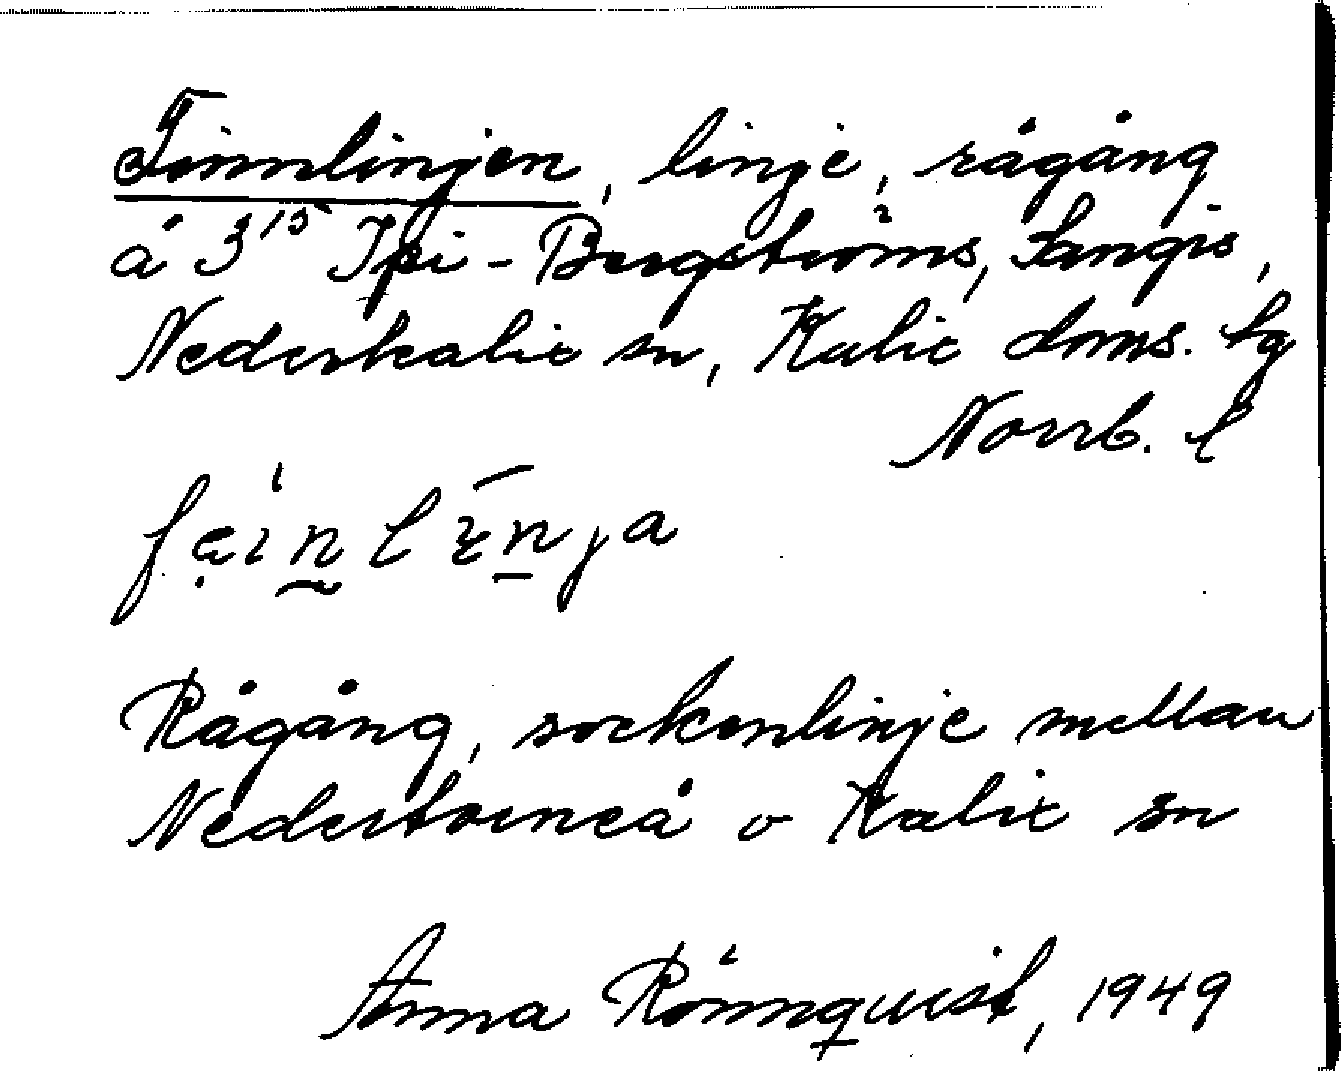 Finnlinjen, linje, rågång
å 3¹⁵ Ipi-Bergströms, Sangis,
Nederkalix sn, Kalix doms. lg
Norrb. l
Rågång, sockenlinje mellan
Nedertorneå o Kalix sn
Anna Rönnquist, 1949